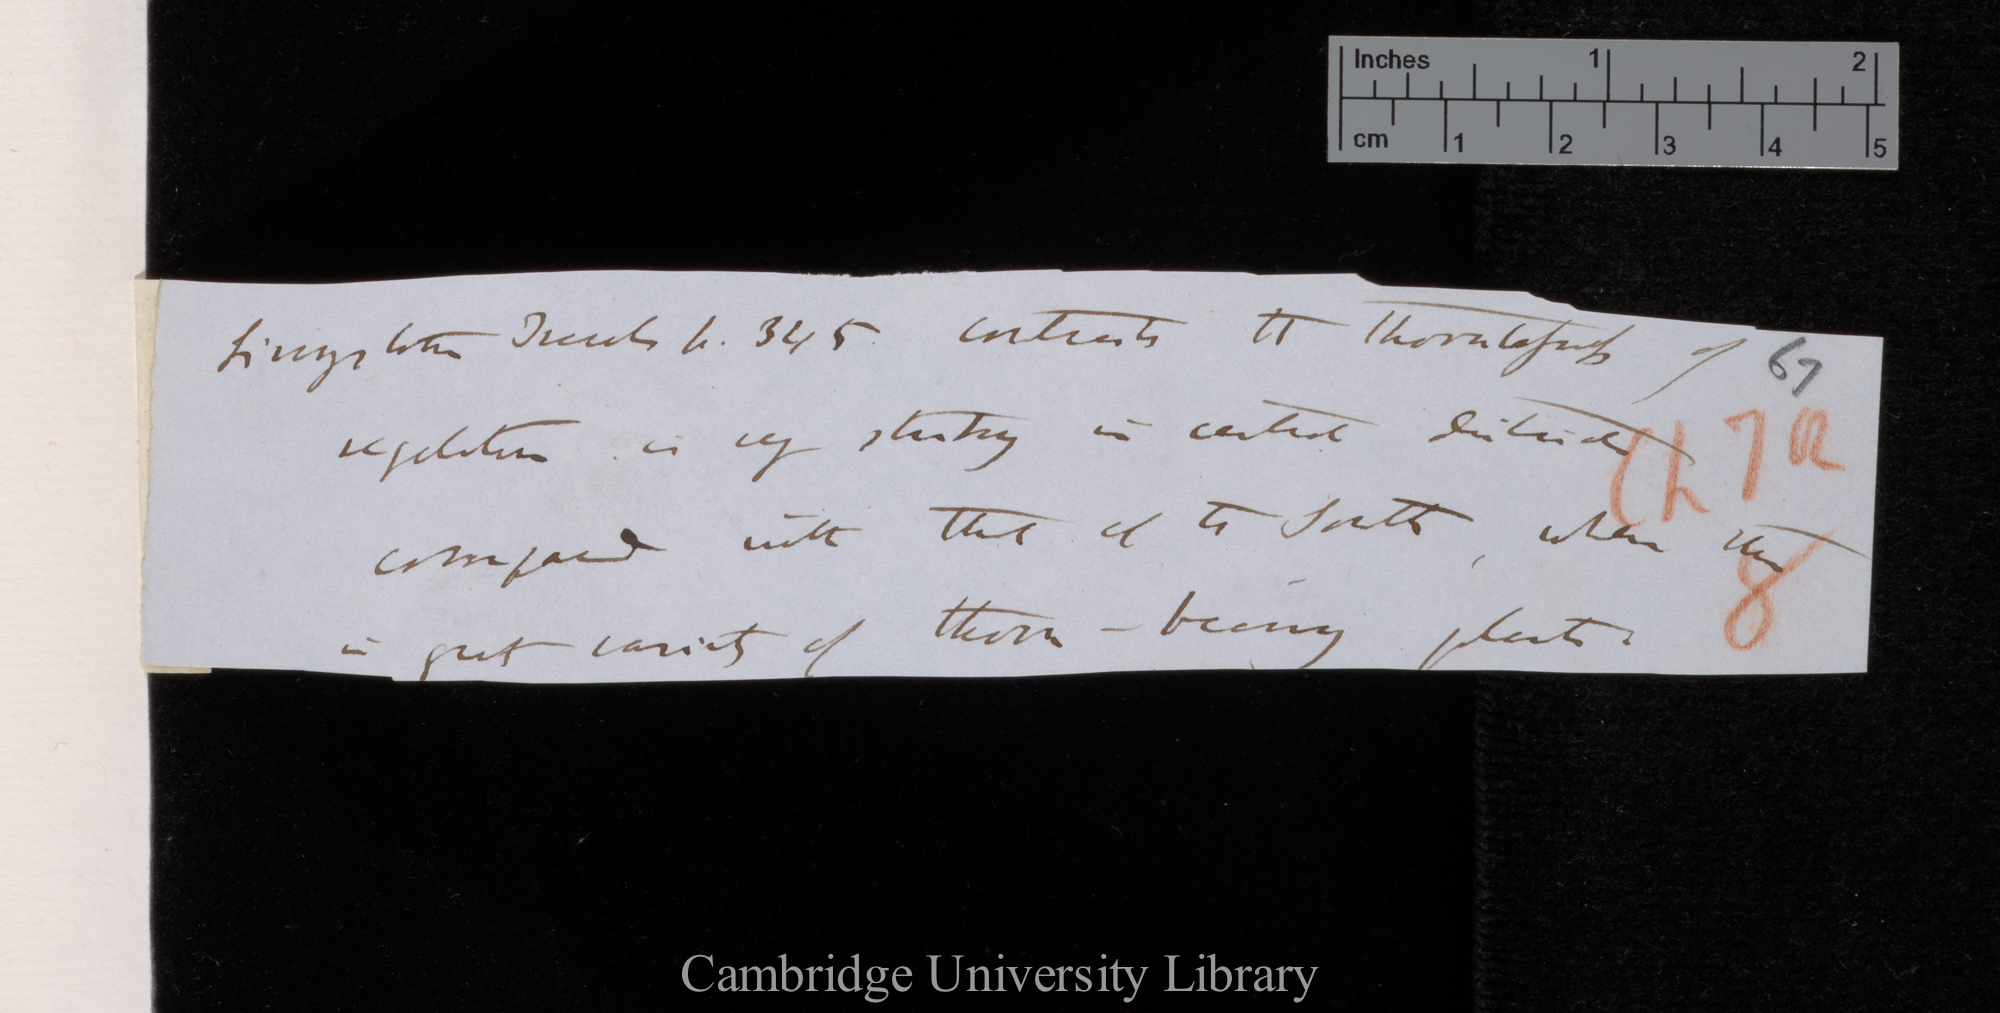 Inches 1 2
cm 1 2 3 4 5
Livingstone Travels p. 345. contrasts the thornlessness of
67
vegetation is very striking in central districts
Ch 7 a
compared with that of the South, where there
8
is great variety of thorn-bearing plants.
Cambridge University Library